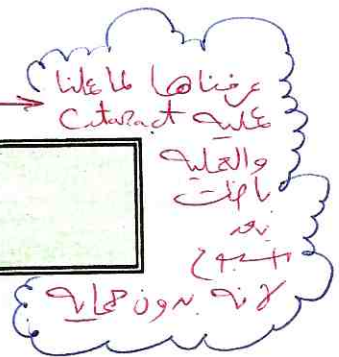 عرفناها لما عملنا
عملية Cataract
والعملية
باظت
بعد
أسبوع
لانه بدون حماية